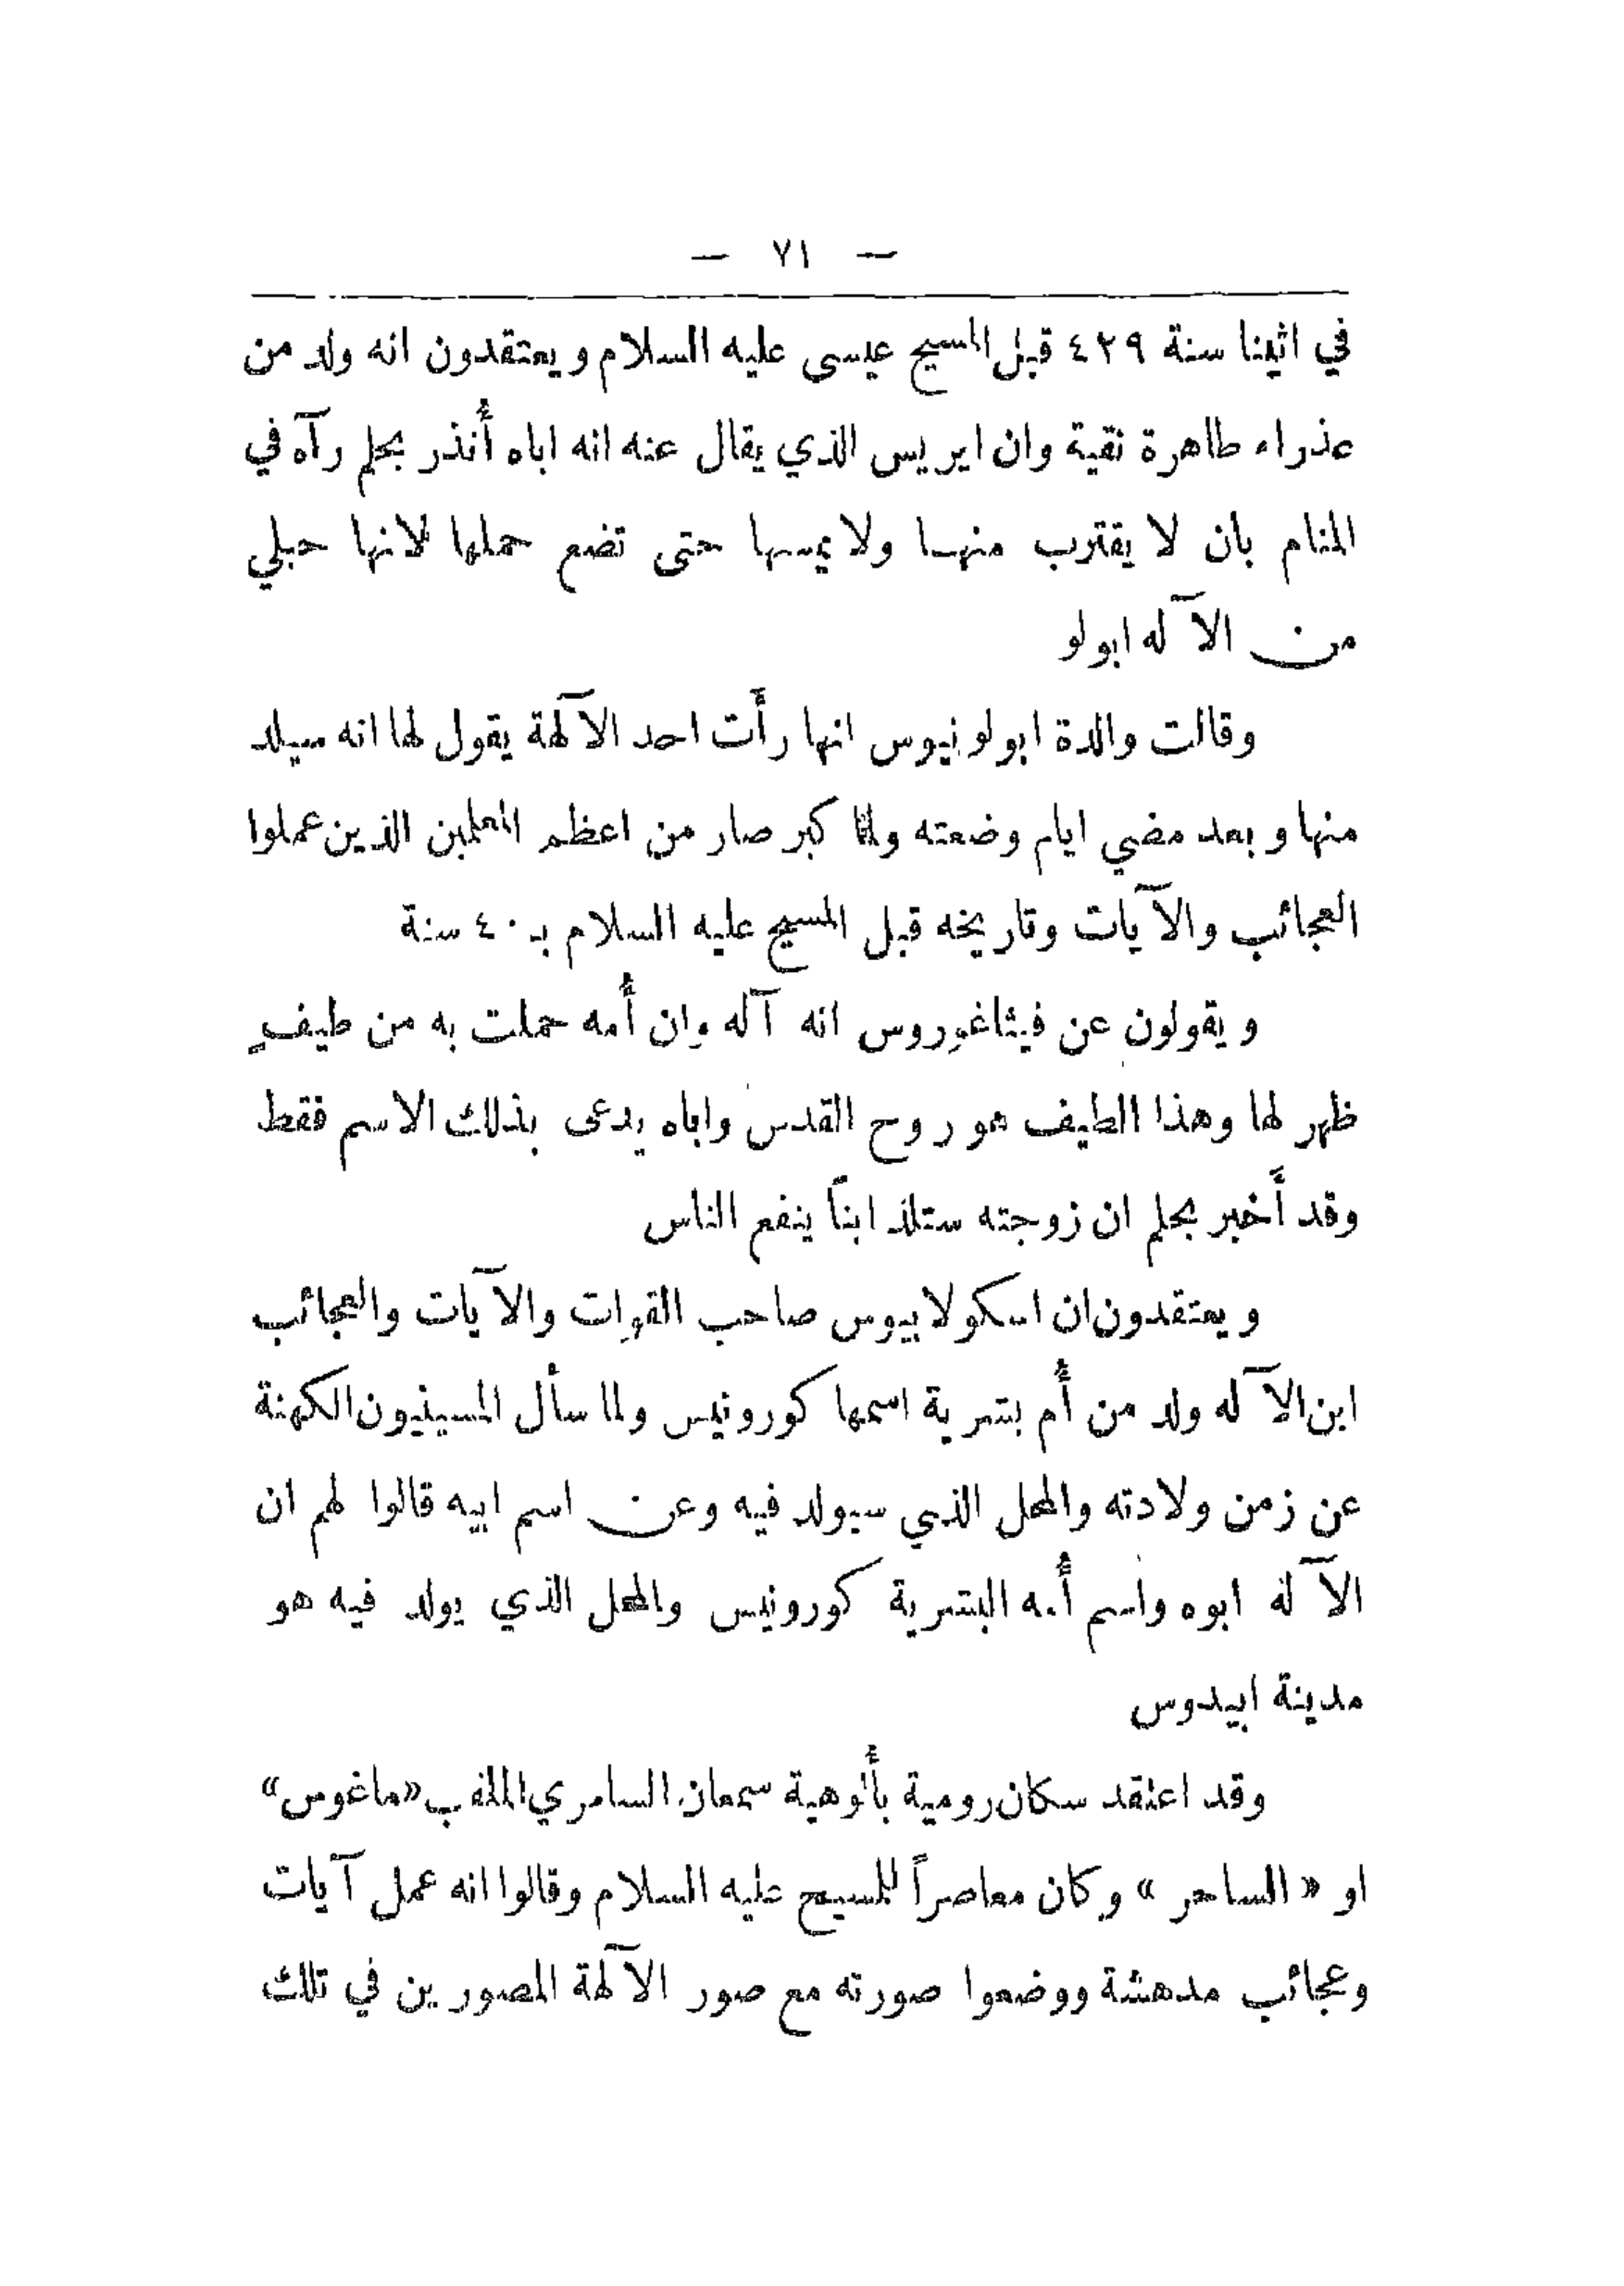 — ٧١ —
في اثينا سنة ٤٢٩ قبل المسيح عيسى عليه السلام ويعتقدون انه ولد من
عذراء طاهرة نقية وان ايريس الذي يقال عنه انه اباه أُنذر بحلم رآه في
المنام بان لا يقترب منها ولا يمسها حتى تضع حملها لانها حبلي
من الآله ابولو
وقالت والدة ابولونيوس انها رأَت احد الآلهة يقول لها انه سيلد
منها وبعد مضي ايام وضعته ولما كبر صار من اعظم المعلمين الذين عملوا
العجائب والآيات وتاريخه قبل المسيح عليه السلام بـ ٤٠ سنة
ويقولون عن فيثاغوروس انه آله وان أُمه حملت به من طيفٍ
ظهر لها وهذا الطيف هو روح القدس واباه يدعى بذلك الاسم فقط
وقد أَخبر بحلم ان زوجته ستلد ابناً ينفع الناس
ويعتقدون ان اسكولابيوس صاحب القوات والآيات والعجائب
ابن الآله ولد من أُم بشرية اسمها كورونيس ولما سأل المسينيون الكهنة
عن زمن ولادته والمحل الذي سيولد فيه وعن اسم ابيه قالوا لهم ان
الآله ابوه واسم أُمه البشرية كورونيس والمحل الذي يولد فيه هو
مدينة ابيدوس
وقد اعتقد سكان رومية بأُلوهية سمعان السامري الملقب «ماغوس»
او «الساحر» وكان معاصراً للمسيح عليه السلام وقالوا انه عمل آيات
وعجائب مدهشة ووضعوا صورته مع صور الآلهة المصورين في تلك